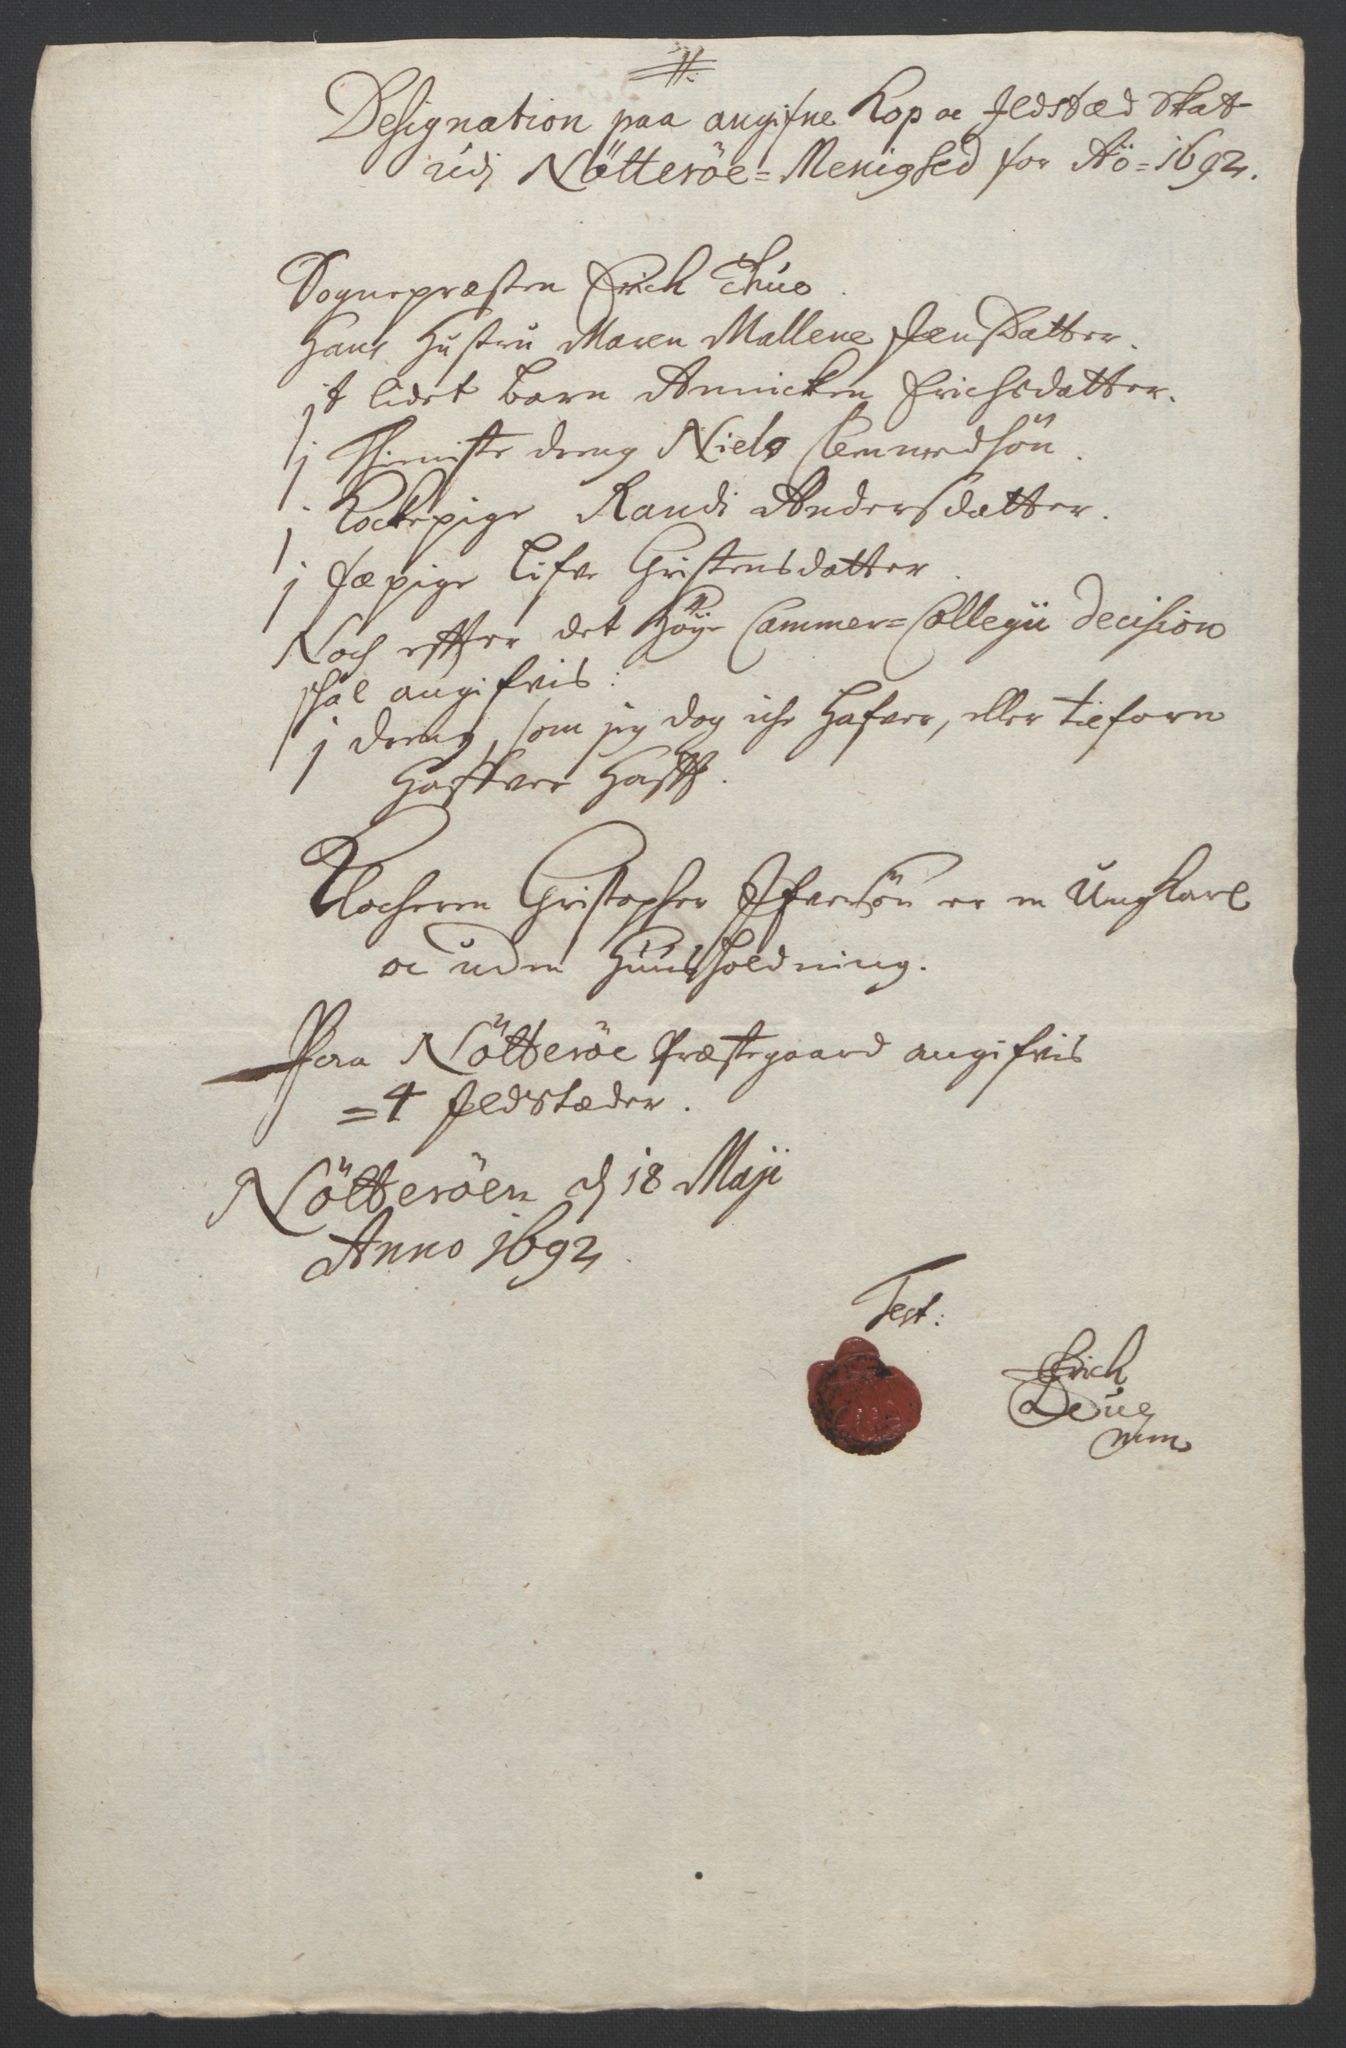 Designation paa angifne Kop oc Jldstæd Skat
udj Nötteröe=Menighed for Aö=1692.
Sognepræsten Erich
Hans Hustru Maren Mallene JensDatter.
jt lidet barn Annicken Erichsdatter.
j Thieniste dreng Niels
j Kockepige Randi Andersdatter.
j fæpige Lifve Christensdatter.
Noch effter det Höye Cammer=Collegii decision
schal angifvis:
j dreng, som jeg dog iche hafver, eller tilforn
Haffver Hafft.
Klocheren Christopher Jfversön er en Ung Karl
oc uden Huusholdning.
Paa Nötteröe Præstegaard angifvis
=4 Jldstæder.
Nötteröen d 18 Maji
Anno 1692.
Test:
Erich
mm